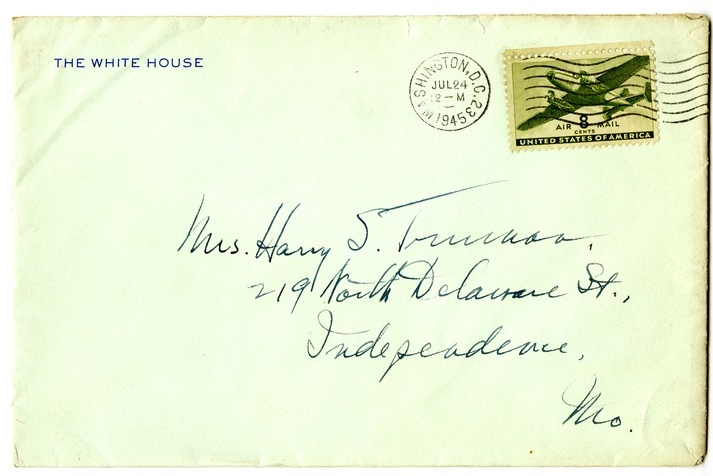 THE WHITE HOUSE
WASHINGTON, D.C. 23
JUL 24
12 - M
1945
AIR 8 MAIL
CENTS
UNITED STATES OF AMERICA
Mrs. Harry S. Truman,
219 North Delaware St.,
Independence,
Mo.